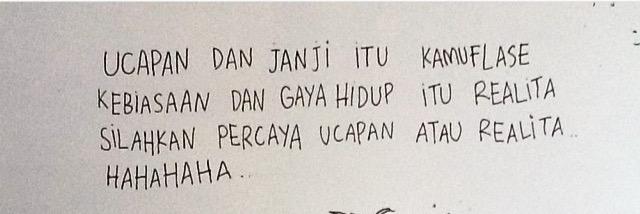 UCAPAN DAN JANJI ITU KAMUFLASE
KEBIASAAN DAN GAYA HIDUP ITU REALITA
SILAHKAN PERCAYA UCAPAN ATAU REALITA..
HAHAHAHA..